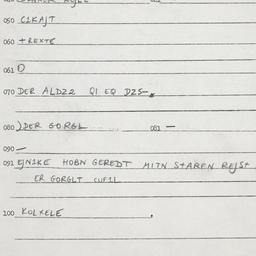 050 CLKAJT
060 +REXTE
061 O
070 DER ALDZZ QI EQ DZS-
080 )DER GORGL 081 —
090 —
091 EJNIKE HOBN GEREDT MITN STAREN REJST
ER GORGLT CUFIL
100 KOLXELE